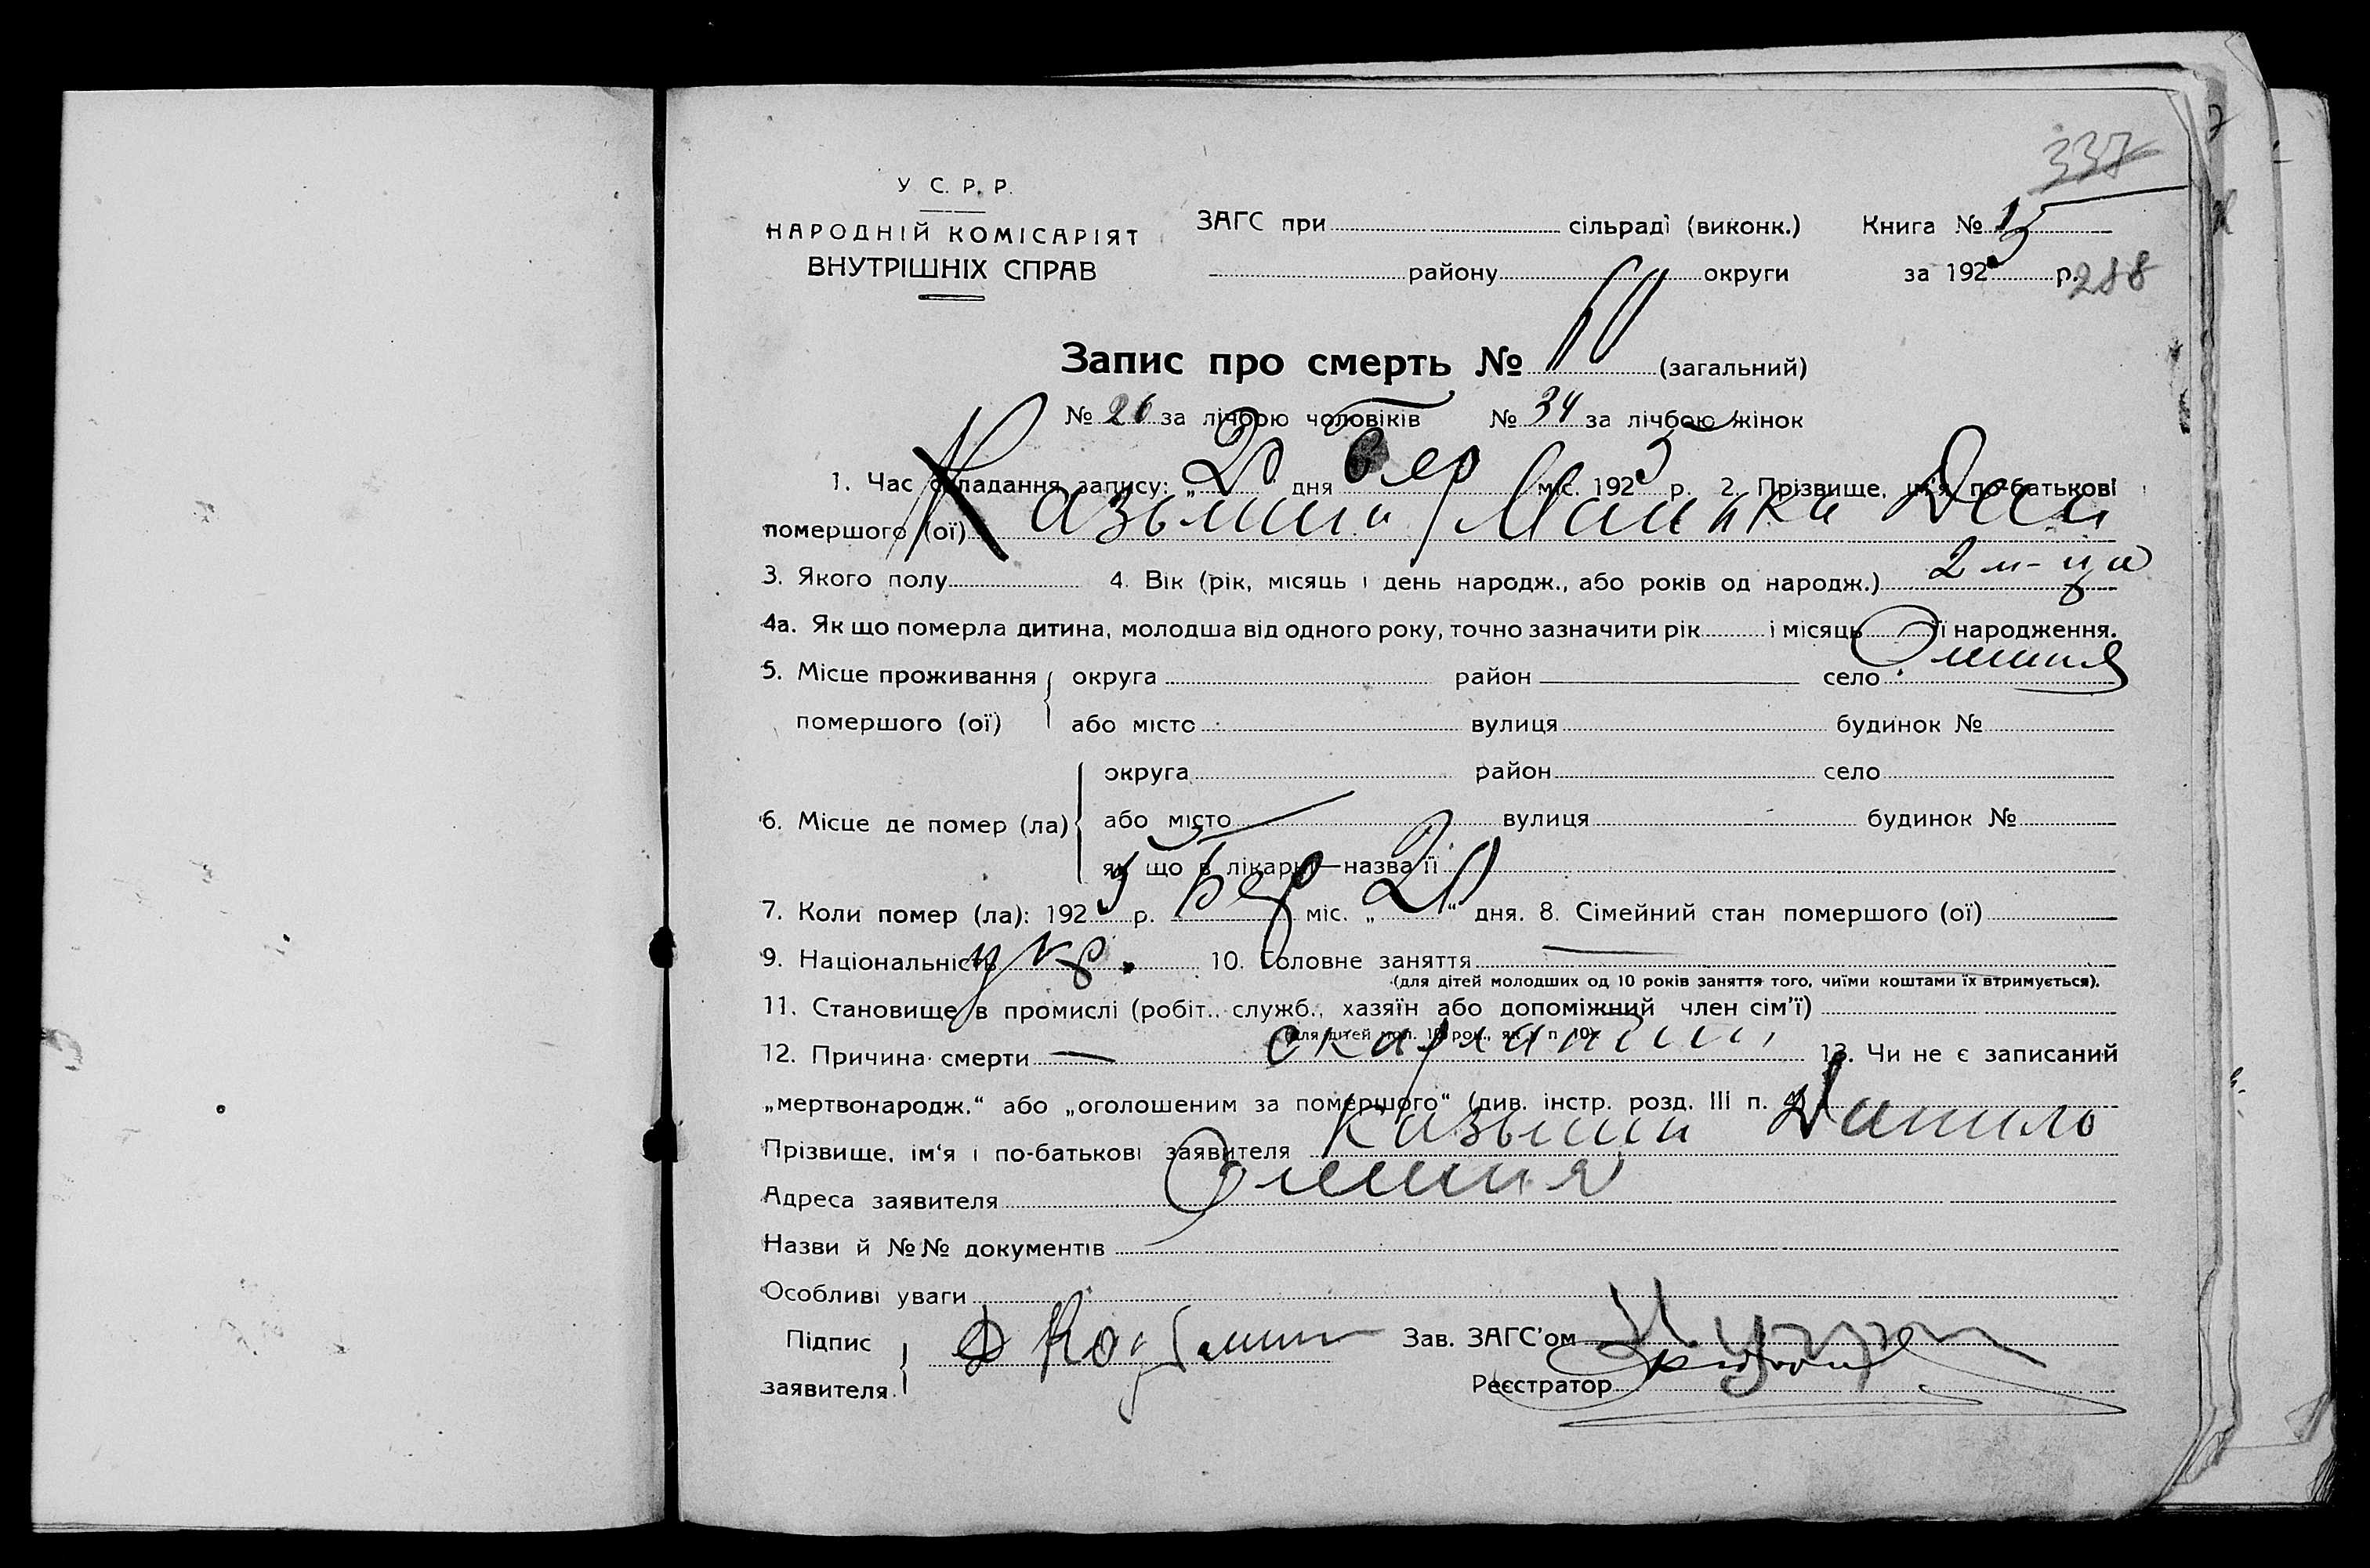 337
У С. Р. Р.
НАРОДНІЙ КОМІСАРІЯТ
ВНУТРІШНІХ СПРАВ
ЗАГС при сільраді (виконк.) Книга №
району округи за 1925 р. 288
Запис про смерть № 60 (загальний)
№ 26 за лічбою чоловіків № 34 за лічбою жінок
1. Час складання запису: „20" дня бер міс. 1925 р. 2. Прізвище, ім'я, по-батькові
помершого (ої) Казьмин
3. Якого полу 4. Вік (рік, місяць і день народж., або років од народж.) 2 м-ца
4а. Як що померла дитина, молодша від одного року, точно зазначити рік і місяць її народження.
5. Місце проживання округа район село
помершого (ої) або місто вулиця будинок №
округа район село
6. Місце де помер (ла) або місто вулиця будинок №
як що в лікарні—назва її
7. Коли помер (ла): 1925 р. бер міс. „20“ дня. 8. Сімейний стан помершого (ої)
9. Національність укр. 10. Головне заняття
(для дітей молодших од 10 років заняття того, чиїми коштами їх втримується).
11. Становище в промислі (робіт., служб., хазяїн або допоміжний член сім'ї)
(для дітей мол. 10 рок., як у п. 10)
12. Причина смерти — скарлатини 13. Чи не є записаний
„мертвонародж.“ або „оголошеним за помершого“ (див. інстр. розд. III п. 4)
Прізвище, ім'я і по-батькові заявителя Казьмин Данило
Адреса заявителя
Назви й №№ документів
Особливі уваги
Підпис Зав. ЗАГС'ом
заявителя Реєстратор